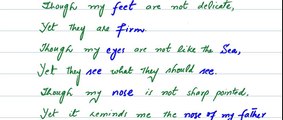 Though my feet are not delicate,
Yet they are firm.
Though my eyes are not like the Sea,
Yet they see what they should see.
Though my nose is not sharp pointed,
Yet it reminds me the nose of my father